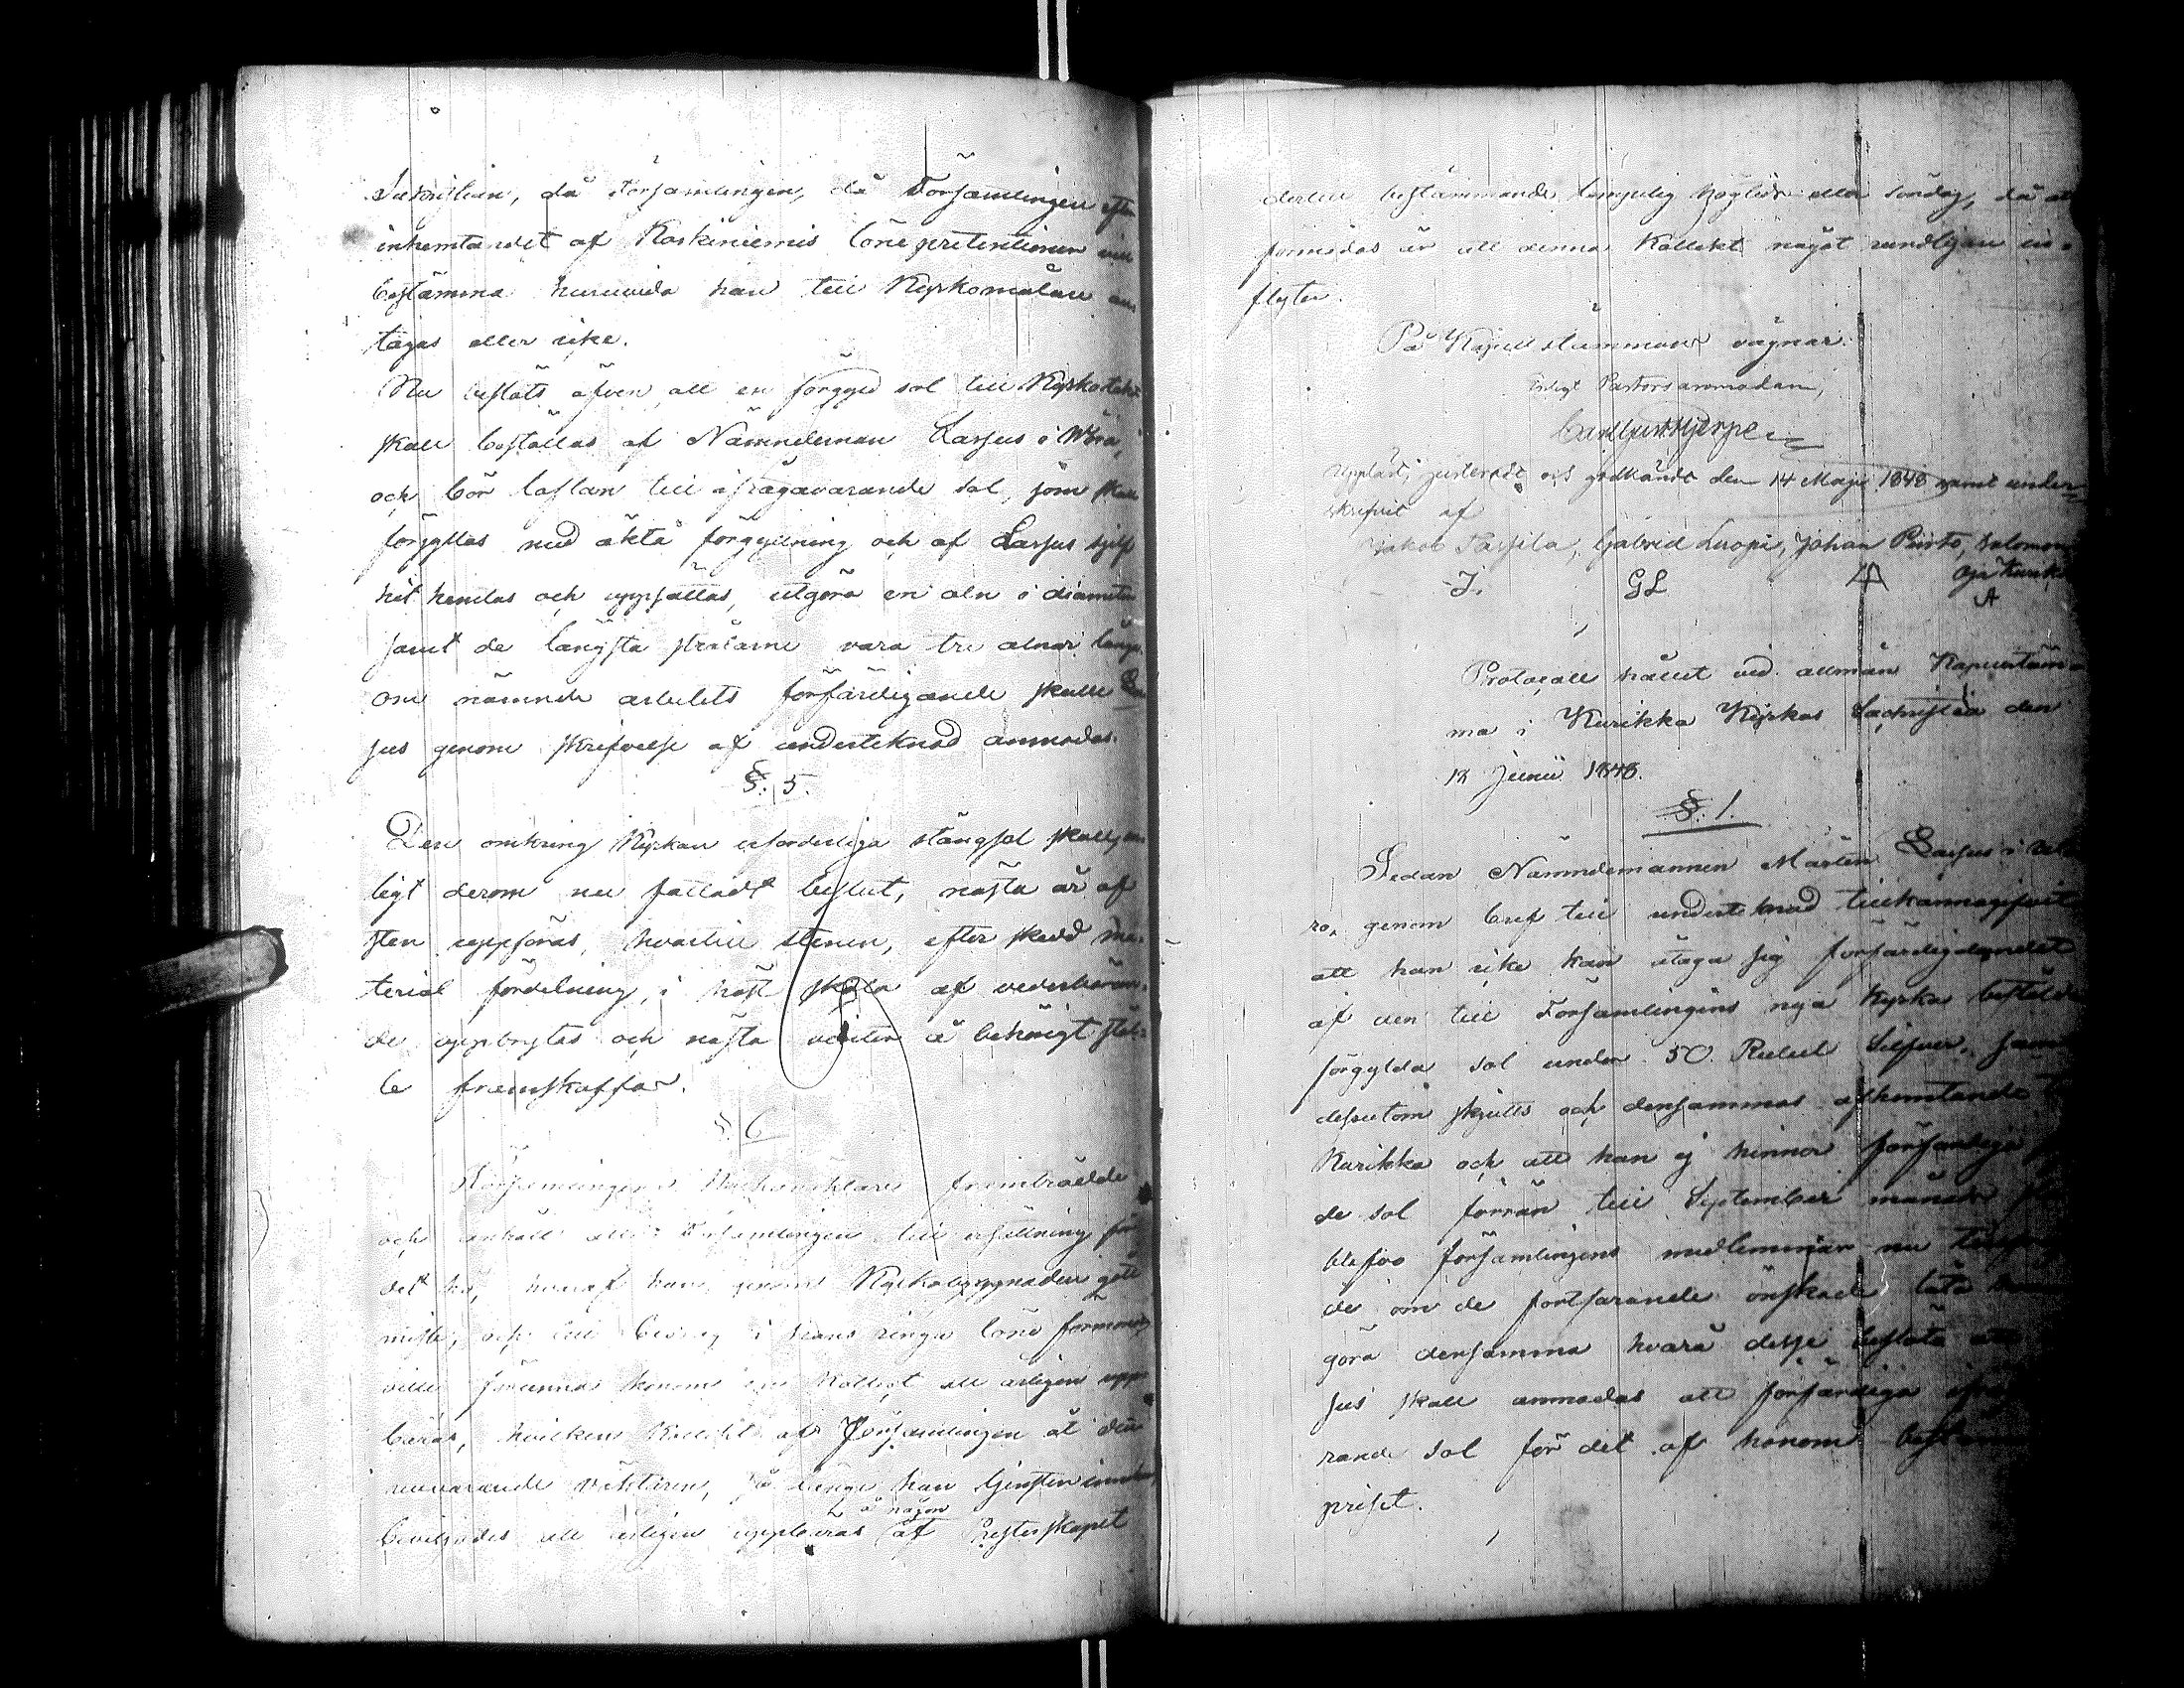 Sakristian, då Församlingen, då Församlingen efter
inhemtandet af Koskiniemis löne pretentionen vill
bestämma huruvida han till Kyrkomålare an
tagas eller icke.
Nu beslöts äfven att en förgyld sol till Kyrkotaket
skall beställas af Nämndeman Larsus i Wörå,
och bör taflan till ifrågavarande sol, som skall
förgyllas med äkta förgyllning och af Larsus sjelf
hit hemtas och uppsättas, utgöra en aln i diameter
samt de längsta strålarne vara tre alnar långa.
om nämnde arbetets förfärdigande skulle Lar
sus genom skrifvelse af undertecknad anmodas.
§. 5.
Den omkring Kyrkan erforderliga stängsel skall, en
ligt derom nu fattadt beslut, nästa år af
sten uppföras, hvartill stenen, efter skedd ma-
terial fördelning, i höst skola af vederböran-
de uppbrytas och nästa vinter å behörigt stäl-
le framskaffas.
§. 6
Församlingens Klockare framträdde
och anhöll att Församlingen till ersättning för
det hö, hvaraf han genom Kyrkobyggnaden gått
miste, och till bidrag i hans ringa löne förmoner
ville förunna honom en Kollekt att årligen upp
bäras, hvilken Kollekt af Församlingen åt den
nuvarande väktaren, så länge han tjensten innehar,
beviljades att årligen uppbäras af Presterskapet
å någon
dertill bestämmande lämpelig högtid eller söndag, då at
förmodas är att denna Kollekt något rundligare in-
flyter.
På Kapellstämmans vägnar.
Enligt Pastors anmodan,
Carl Gust. Hjerpe
Uppläst, justeradt och godkändt den 14 Maji 1848 samt under-
skrifvit af
Jakob Passila, Gabriel Luopa, Johan Puisto, Salomon
Oja Kurikka
J. GL A
Protocoll hållet vid allmän Kapellstäm-
ma i Kurikka Kyrkas Sachristia den
12 Junii 1848.
§. 1.
Sedan Nämndemannen Mårten Larsus i Wö
ro, genom bref till undertecknad tillkännagifvit
att han icke kan åtaga sig förfärdigandet
af den till Församlingens nya Kyrka bestälda
förgylda sol under 50 Rubel Silfver, samt
dessutom skjuts och densammas afhemtande
Kurikka och att han ej hinner förfärdiga
de sol förrän till September månads
blefvo församlingens medlemmar nu
de om de fortfarande önskade låta
göra densamma hvarå desse beslöto att
sus skall anmodas att förfärdiga
rande sol för det af honom bestämda
priset.